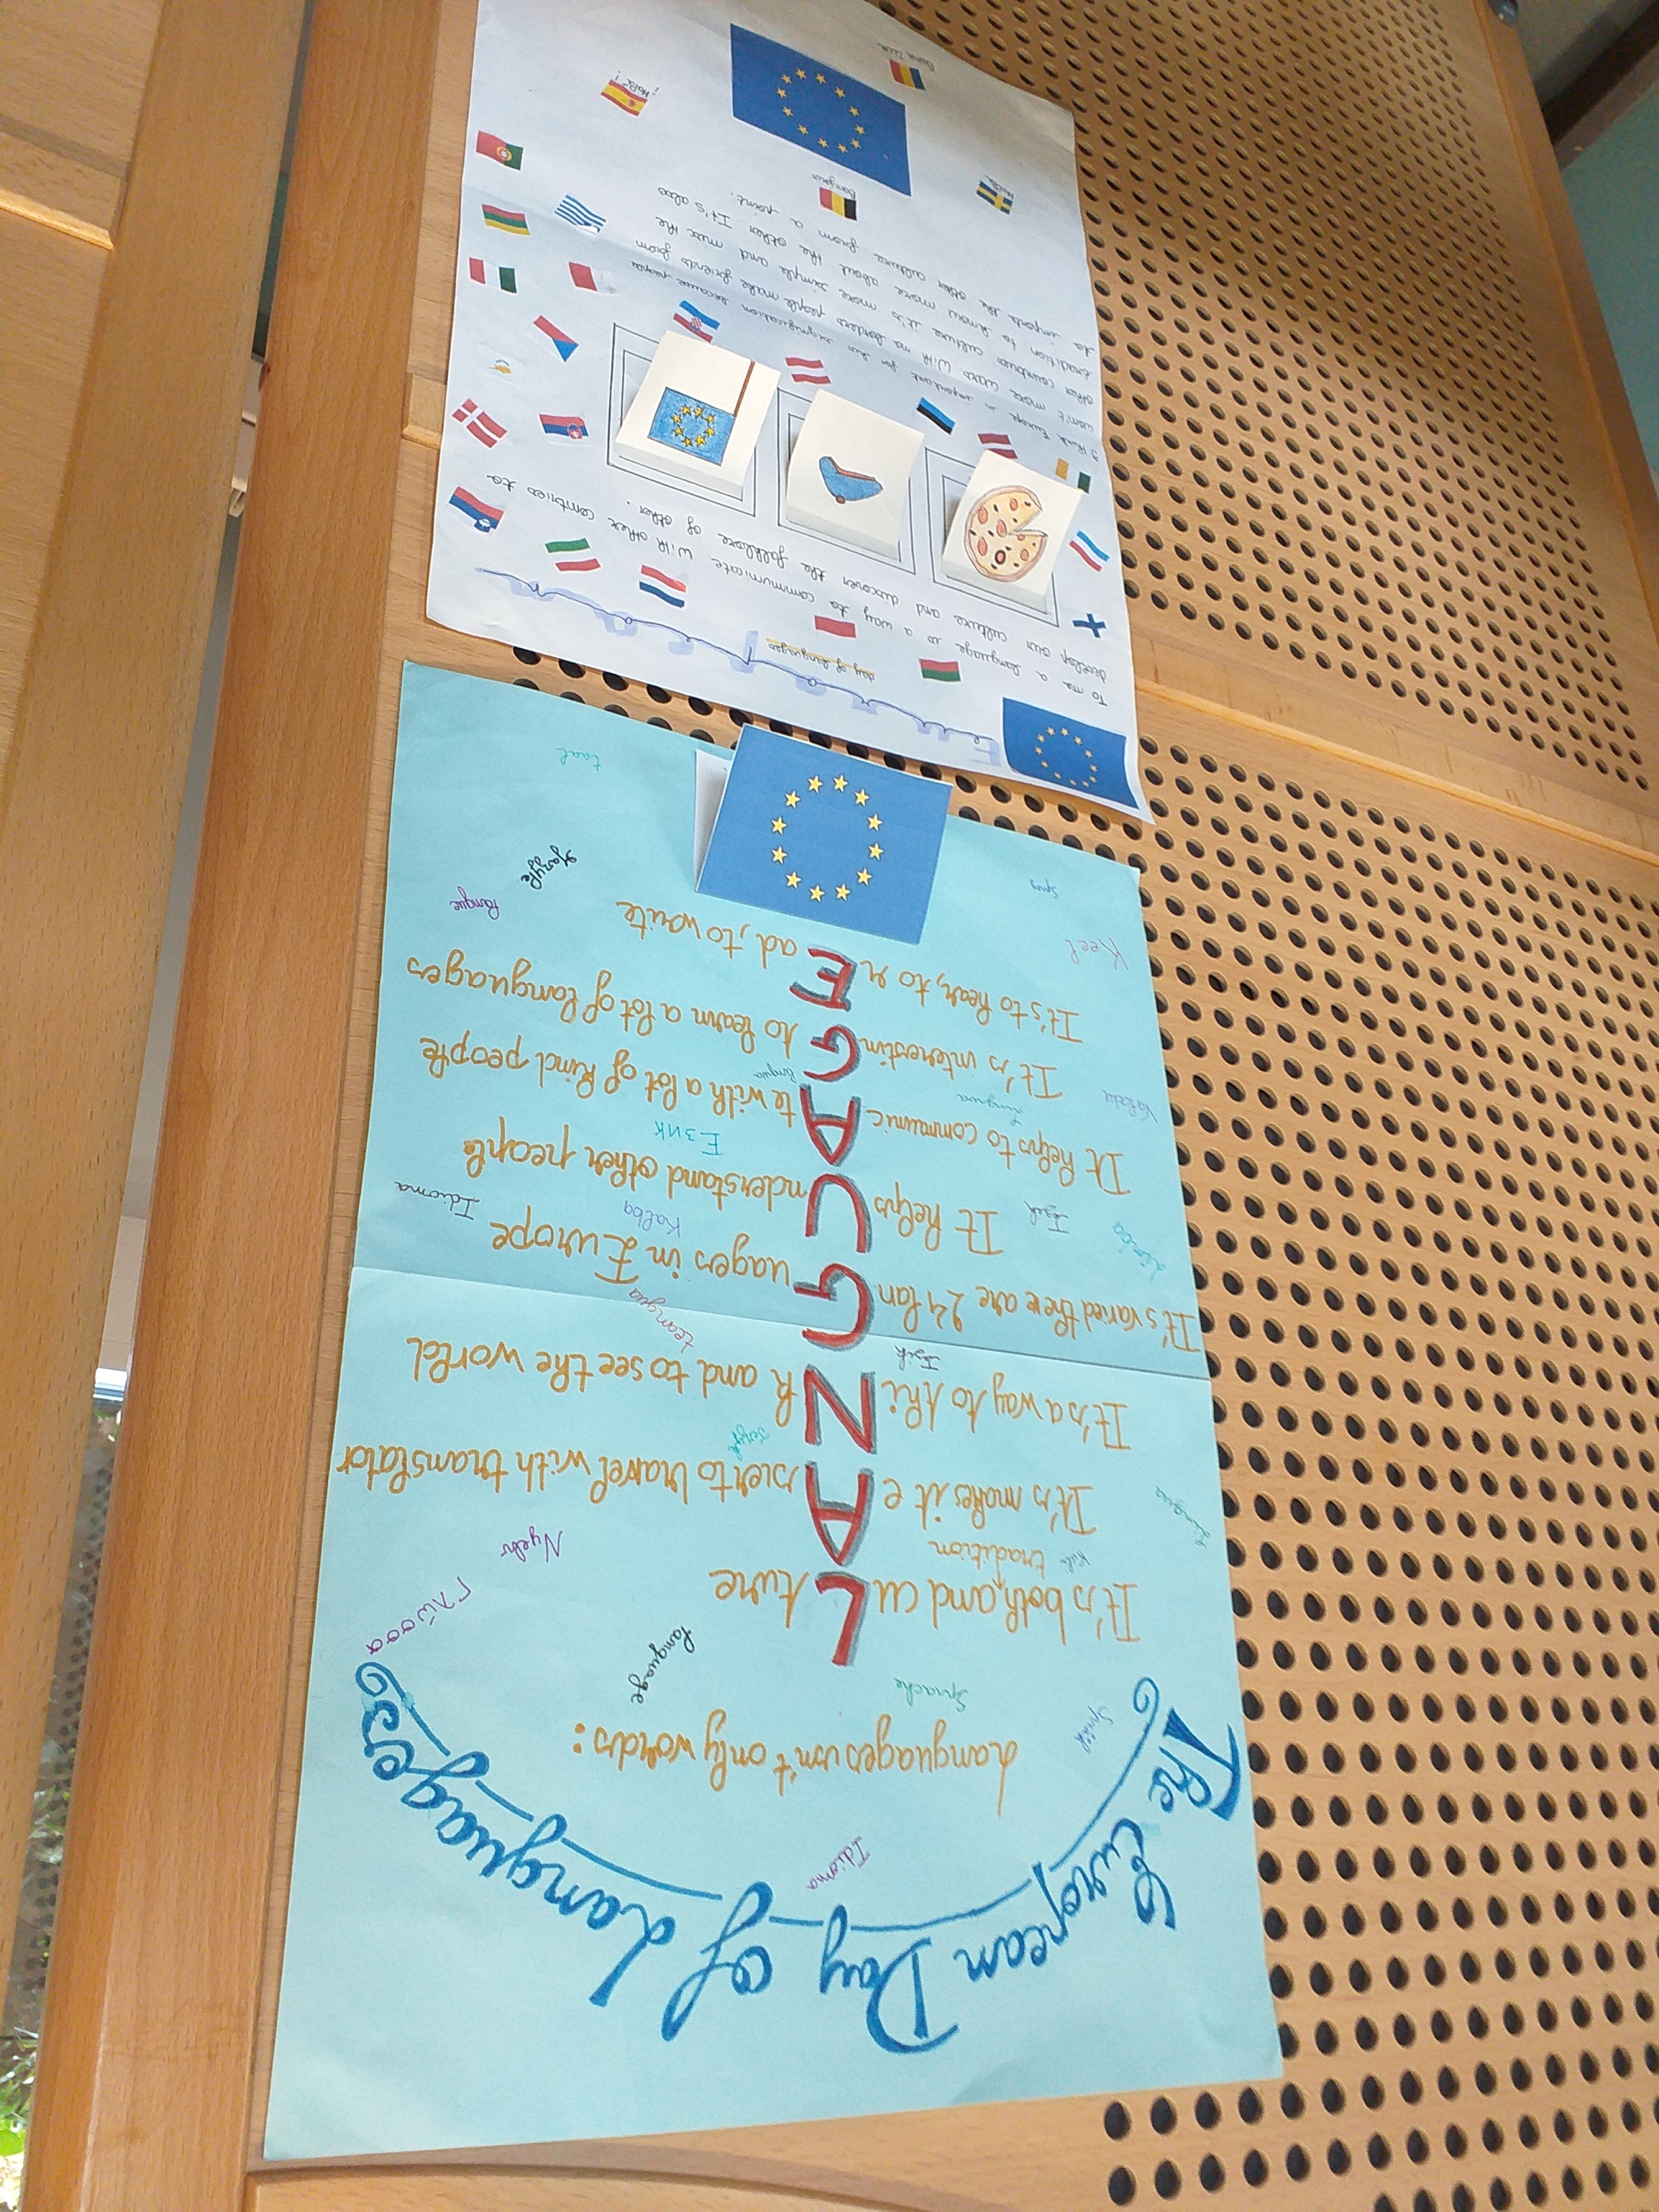 The European Day of Languages
Idioma
Språk
Languages isn't only words:
Sprache
language
Γλώσσα
It's both, and cu L ture
Kiel tradition
Nyelv
It's makes it e A sier to travel with translator
Lingua
Język
It's a way to thi N k and to see the world
Jezik
teanga
It's varied there are 24 lan G uages in Europe
Kalba
Idioma
It helps U nderstand other people
Jezik
Език
It helps to communic A te with a lot of kind people
Lingwa
lingua
Valoda
It's interestin G to learn a lot of languages
It's to hear, to r E ad, to write
Keel
langue
Jazyk
Sprog
taal
European
day of languages
To me a language is a way to communicate with other contries to
develop our culture and discover the folklore of other.
I think Europe is important for his signification because people
won't more wars with no borders people make friends from
other countries culture it's more simple and mix the
tradition to know more about the other It's also
to imports the other culture from a joint.
Bonjour
Hallå
¡Holà!
Bună ziua